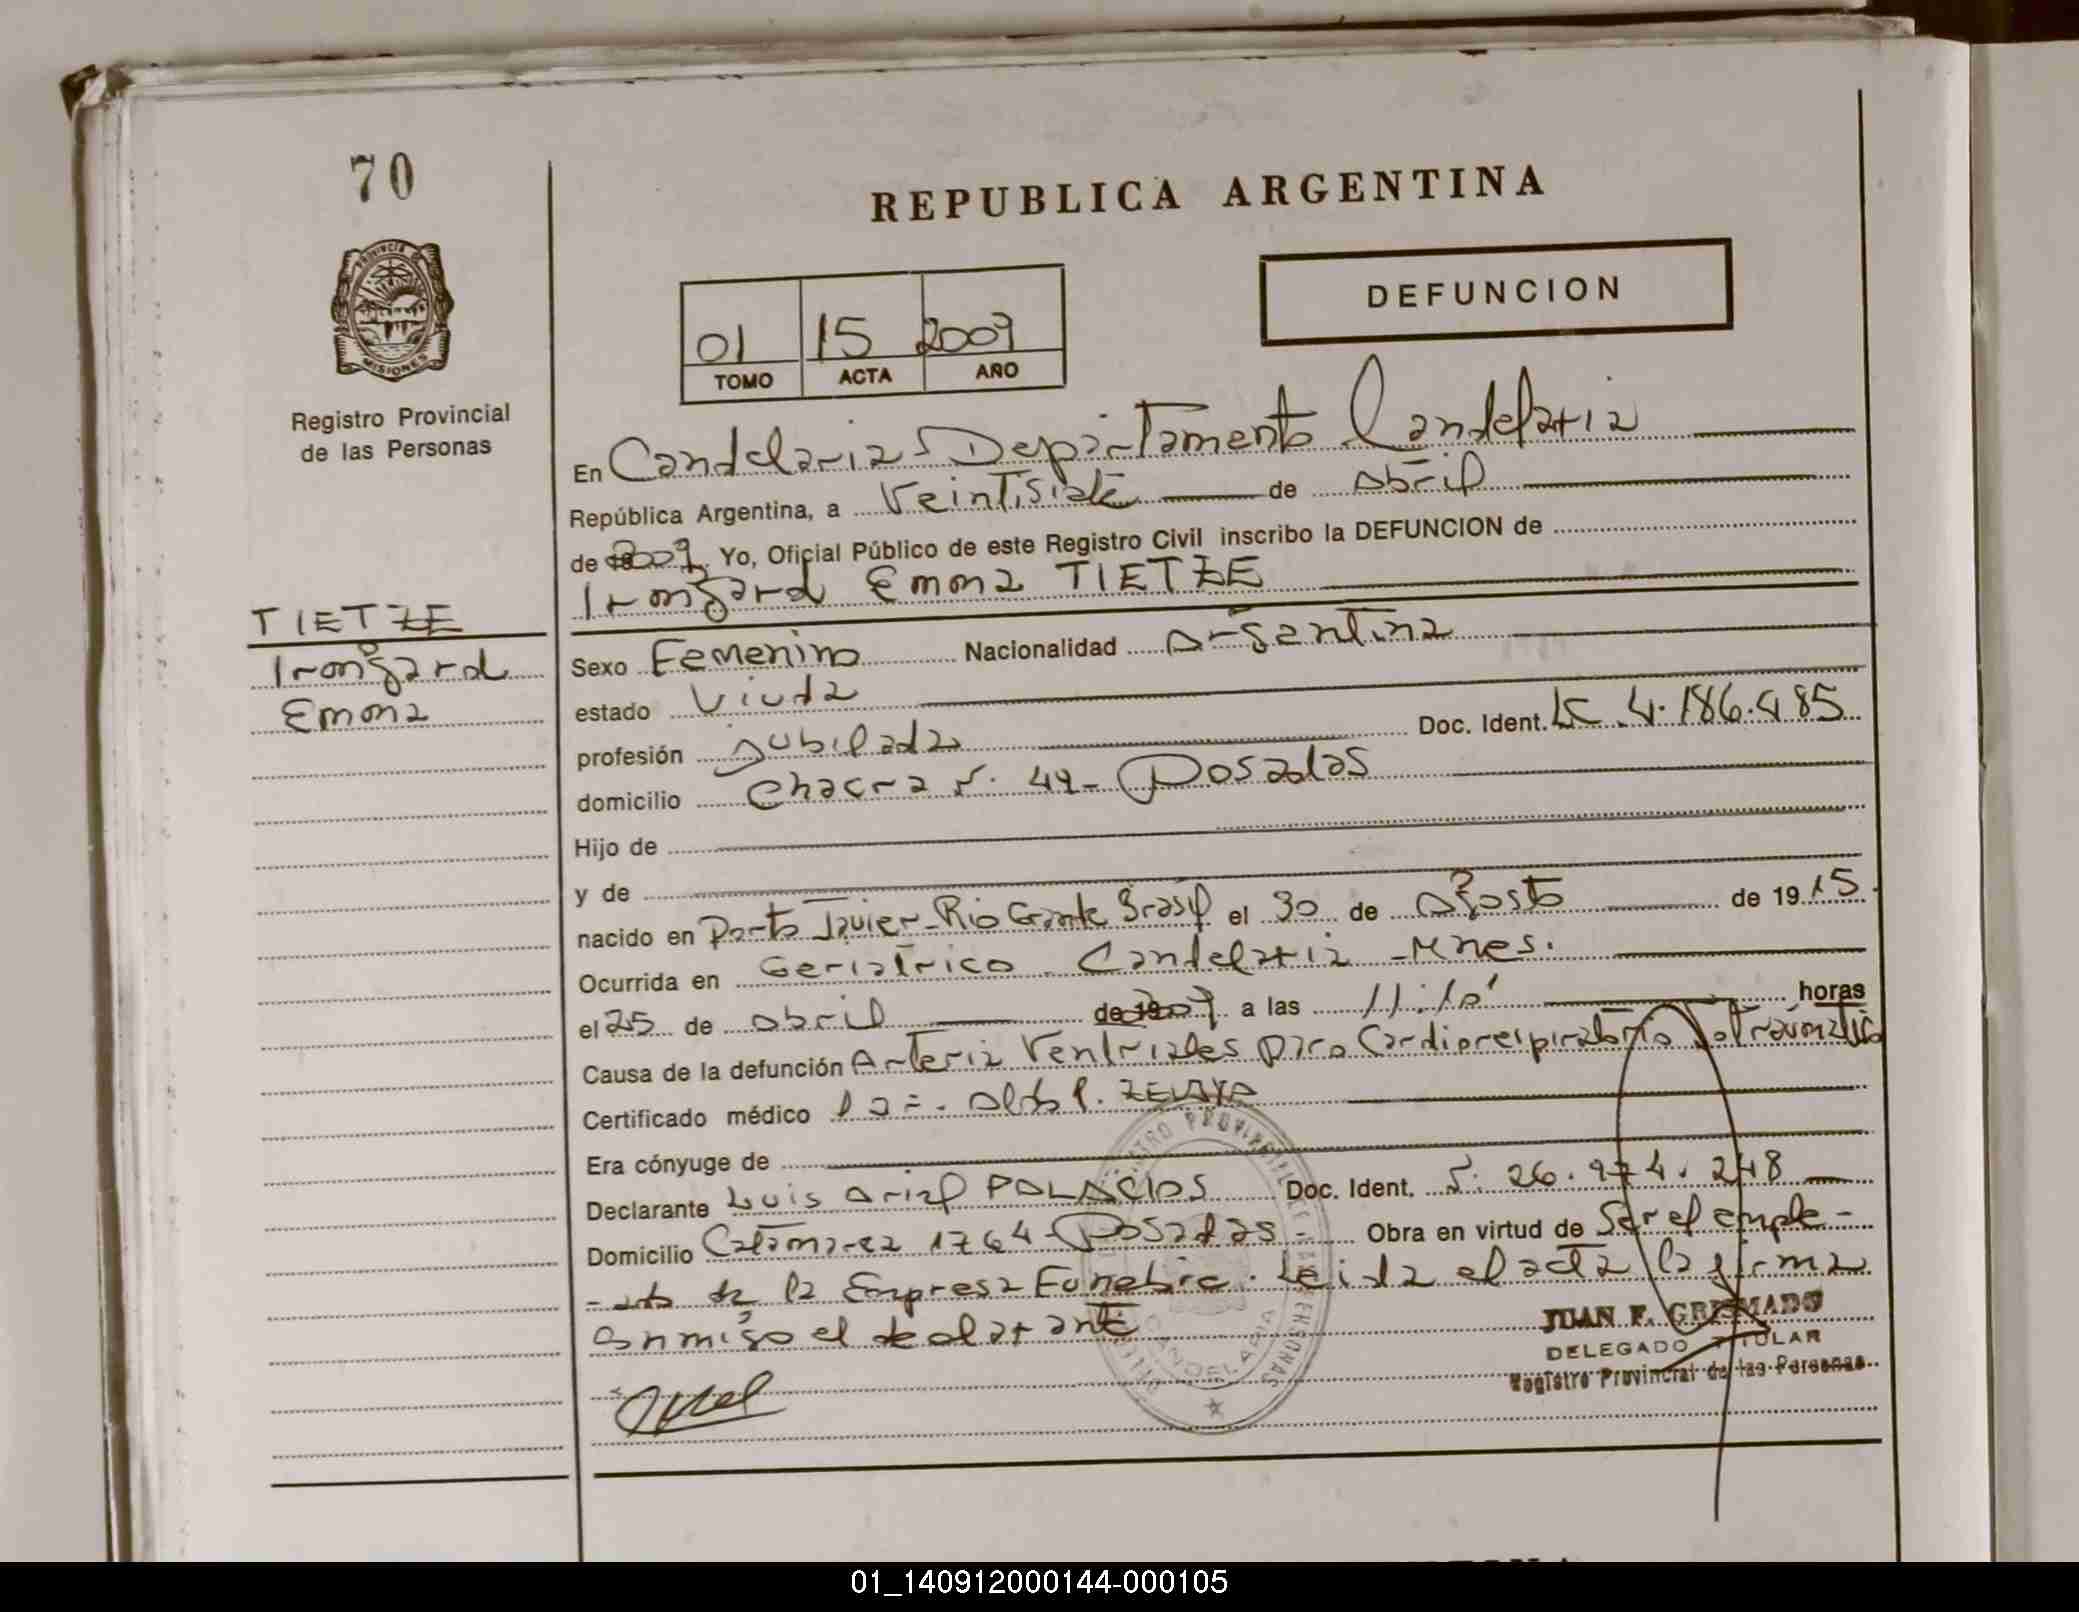 70
REPUBLICA ARGENTINA
PROVINCIA DE MISIONES
Registro Provincial
de las Personas
DEFUNCION
01 15 2009
TOMO ACTA AÑO
En Candelaria Departamento Candelaria
República Argentina, a Veintisiete de Abril
de 2009 Yo, Oficial Público de este Registro Civil inscribo la DEFUNCION de
Irmgard Emma TIETZE
TIETZE
Irmgard
Emma
Sexo Femenino Nacionalidad Argentina
estado Viuda
profesión Jubilada Doc. Ident. LC 4.186.485
domicilio Chacra 49- Posadas
Hijo de
y de
nacido en Porto Javier-Rio Grande Brasil el 30 de Agosto de 1915
Ocurrida en Geriatrico Candelaria -Mnes.
el 25 de Abril de 2009 a las 11:10' horas
Causa de la defunción Arteria Ventriales paro Cardiorespiratorio
Certificado médico ZELAYA
Era cónyuge de
Declarante Luis Ariel PALACIOS Doc. Ident. 26.974.248
Domicilio Catamarca 1764-Posadas- Obra en virtud de Ser el emple-
-ado de la Empresa Funebre. Leida el acta la firma
conmigo el declarante
JUAN F. GRISMADO
DELEGADO TITULAR
Registro Provincial de las Personas
REGISTRO PROVINCIAL DE LAS PERSONAS
CANDELARIA
01_140912000144-000105